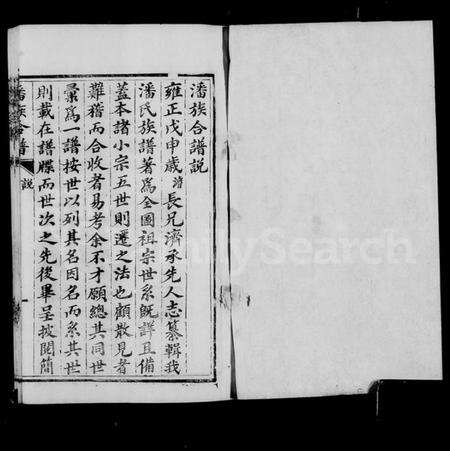 潘族合譜說
雍正戊申歲濬長兄濟承先人志纂輯我
潘氏族譜著為全圖祖宗世系旣詳且備
蓋本諸小宗五世則遷之法也顧散見者
難稽而合收者易考余不才願總其同世
彙為一譜按世以列其名因名而系其世
則載在譜牒而世次之先後畢呈披閱簡
潘族合譜 說
FamilySearch